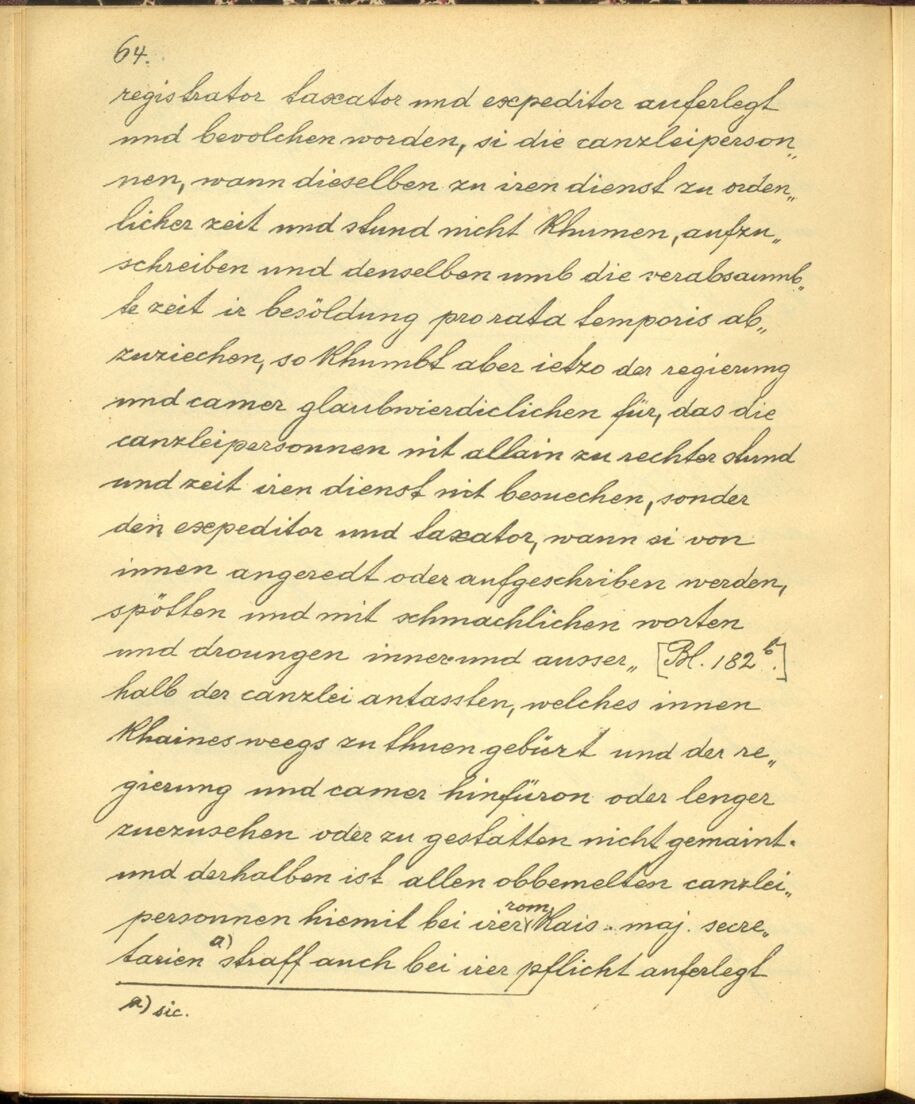 64.
registrator taxator und expeditor auferlegt
und bevolchen worden, si die canzleiperson„
nen, wann dieselben zu iren dienst zu orden„
licher zeit und stund nicht khumen, aufzu„
schreiben und denselben umb die verabsaumb„
te zeit ir besöldung pro rata temporis ab„
zuziechen, so khumbt aber ietzo der regierung
und camer glaubwierdiclichen für, das die
canzleipersonnen nit allain zu rechter stund
und zeit iren dienst nit besuechen, sonder
den expeditor und taxator, wann si von
innen angeredt oder aufgeschriben werden,
spötten und mit schmachlichen worten
und droungen inner und ausser„ [Bl. 182 b.]
halb der canzlei antassten, welches innen
khaines weegs zu thuen gebürt und der re„
gierung und camer hinfüron oder lenger
zuezusehen oder zu gestatten nicht gemaint.
und derhalben ist allen obbemelten canzlei„
personnen hiemit bei irer röm. kais. maj. secre„
tarien a) straff auch bei irer pflicht auferlegt
a) sic.